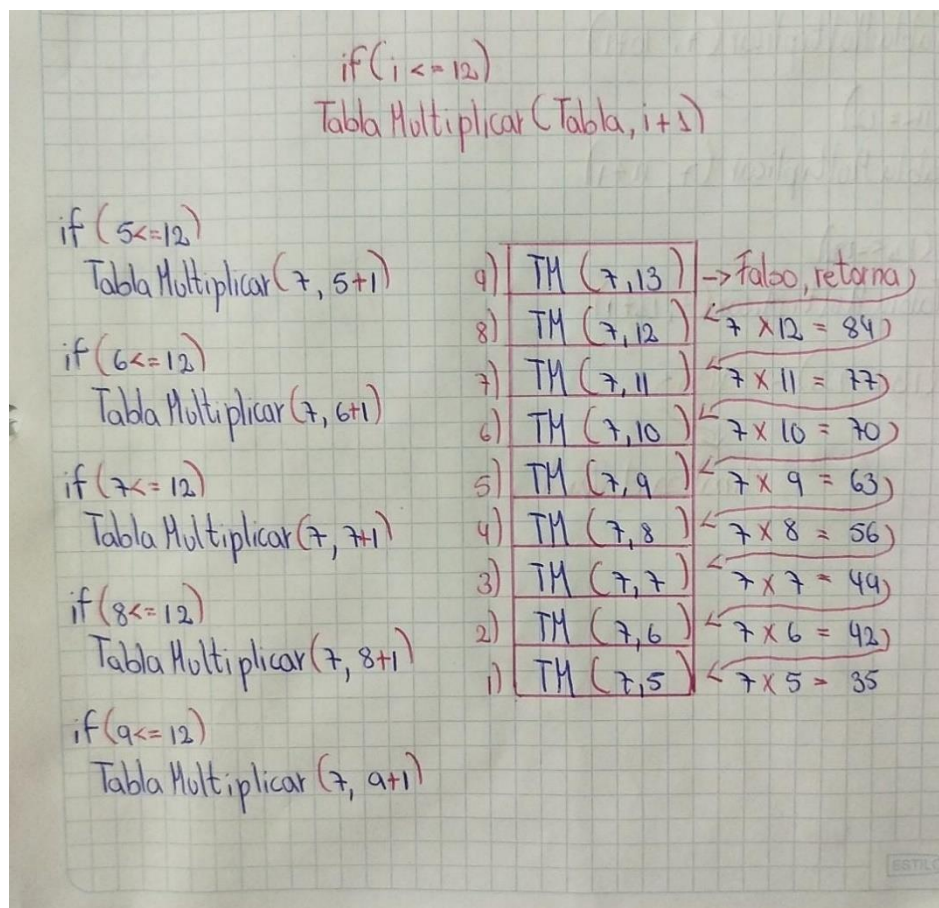 if(i <= 12)
Tabla Multiplicar (Tabla, i+1)
if (5<=12)
Tabla Multiplicar (7, 5+1)
if (6<=12)
Tabla Multiplicar (7, 6+1)
if (7<=12)
Tabla Multiplicar (7, 7+1)
if (8<=12)
Tabla Multiplicar (7, 8+1)
if (9<=12)
Tabla Multiplicar (7, 9+1)
9) TM (7,13) -> Falso, retorna
8) TM (7,12) 7 x 12 = 84
7) TM (7,11) 7 x 11 = 77
6) TM (7,10) 7 x 10 = 70
5) TM (7,9) 7 x 9 = 63
4) TM (7,8) 7 x 8 = 56
3) TM (7,7) 7 x 7 = 49
2) TM (7,6) 7 x 6 = 42
1) TM (7,5) 7 x 5 = 35